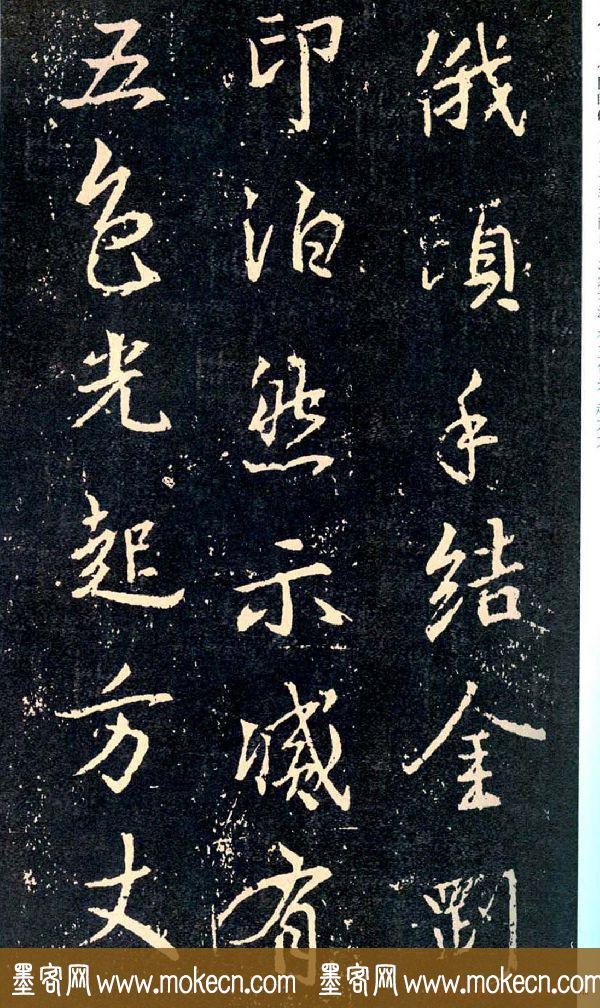 俄頃手結金剛
印泊然示滅有
五色光起方丈
墨客网 www.mokecn.com 墨客网 www.mokecn.com